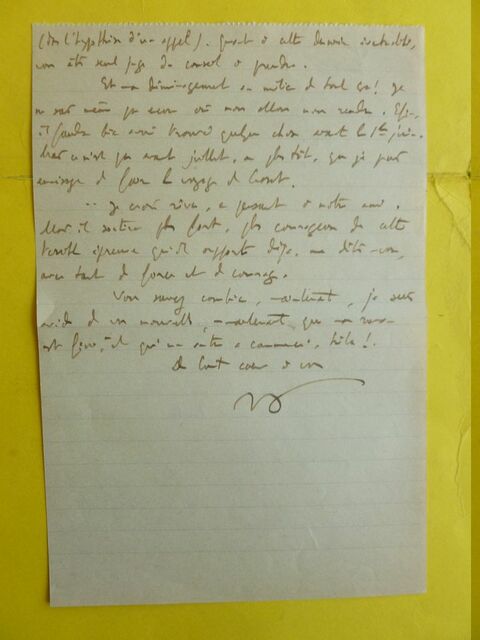 (dans l'hypothèse d'un appel). Quant à cette dernière éventualité,
vous êtes seul juge du conseil à prendre.
Et un déménagement au milieu de tout ça ! Je
ne sais même pas encore où nous allons nous rendre.
il faudra bien avoir trouvé quelque chose avant le 1er
mais ce n'est pas avant juillet, au plus tôt, que je puis
envisager de faire le voyage de
.. Je crois rêver, en pensant à notre ami.
Mais il sortira plus fort, plus courageux de cette
terrible épreuve qu'il supporte déjà, me dites-vous,
avec tant de force et de courage.
Vous savez combien, maintenant, je suis
avide de vos nouvelles, maintenant que
est fini, et qu'un autre a commencé, hélas !
De tout cœur à vous